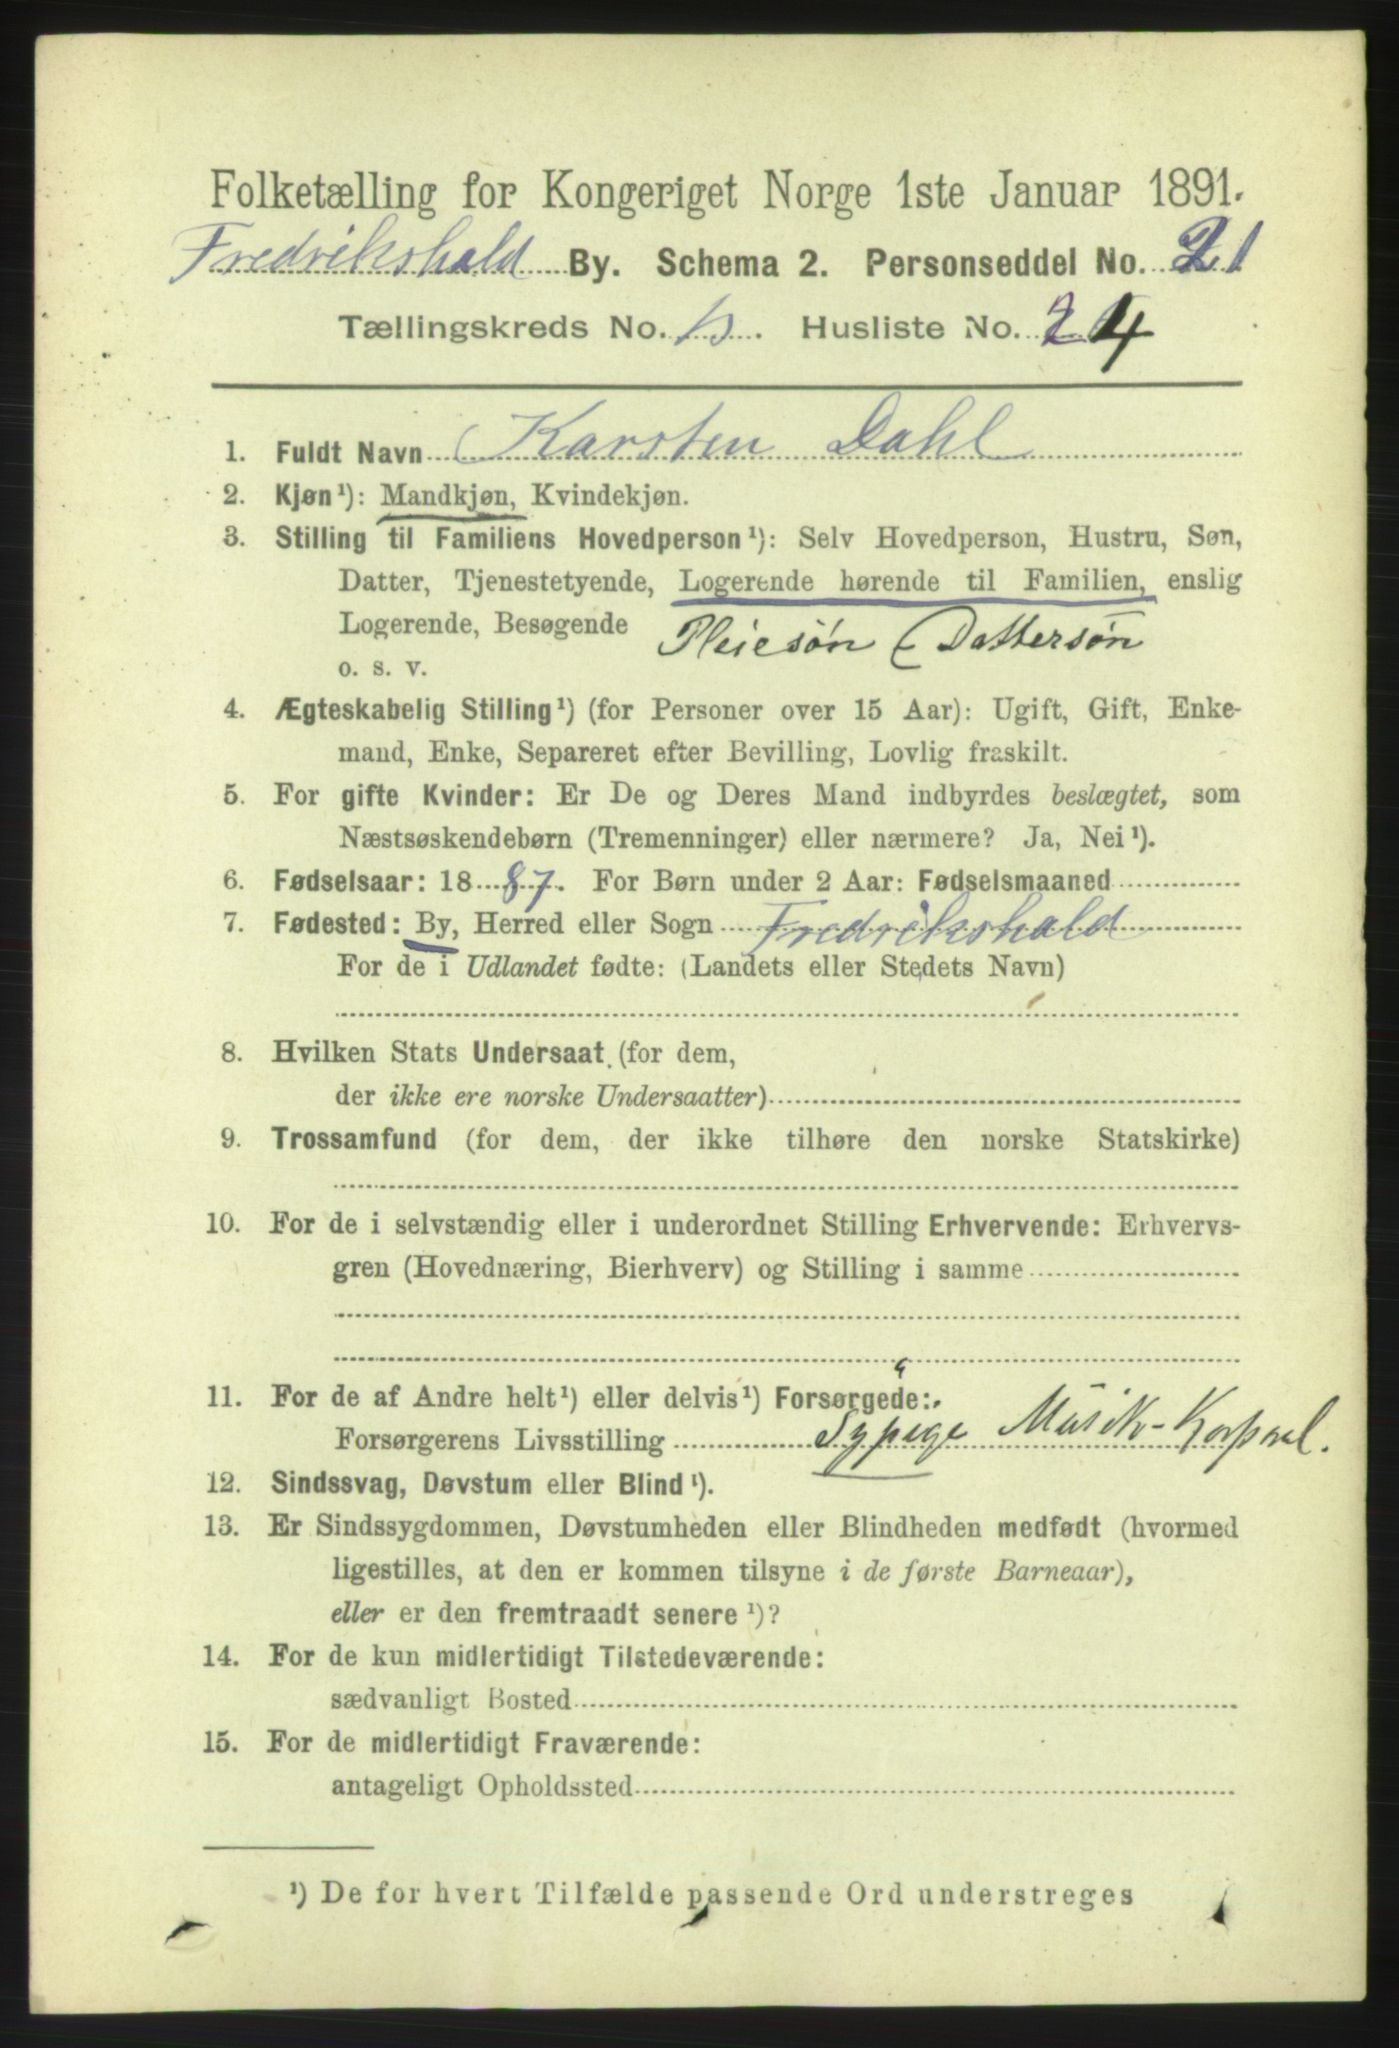 Folketælling for Kongeriget Norge 1ste Januar 1891.
Fredrikshald By. Schema 2. Personseddel No. 21
Tællingskreds No. Husliste No. 24
1. Fuldt Navn Karsten Dahl
2. Kjøn¹): Mandkjøn, Kvindekjøn.
3. Stilling til Familiens Hovedperson¹): Selv Hovedperson, Hustru, Søn,
Datter, Tjenestetyende, Logerende hørende til Familien, enslig
Logerende, Besøgende Pleiesøn (Dattersøn
o. s. v.
4. Ægteskabelig Stilling¹) (for Personer over 15 Aar): Ugift, Gift, Enke-
mand, Enke, Separeret efter Bevilling, Lovlig fraskilt.
5. For gifte Kvinder: Er De og Deres Mand indbyrdes beslægtet, som
Næstsøskendebørn (Tremenninger) eller nærmere? Ja, Nei¹).
6. Fødselsaar: 1887. For Børn under 2 Aar: Fødselsmaaned
7. Fødested: By, Herred eller Sogn Fredrikshald
For de i Udlandet fødte: (Landets eller Stedets Navn)
8. Hvilken Stats Undersaat (for dem,
der ikke ere norske Undersaatter)
9. Trossamfund (for dem, der ikke tilhøre den norske Statskirke)
10. For de i selvstændig eller i underordnet Stilling Erhvervende: Erhvervs-
gren (Hovednæring, Bierhverv) og Stilling i samme
11. For de af Andre helt¹) eller delvis¹) Forsørgede:
Forsørgerens Livsstilling Sypige Musik-Korporal.
12. Sindssvag, Døvstum eller Blind¹).
13. Er Sindssygdommen, Døvstumheden eller Blindheden medfødt (hvormed
ligestilles, at den er kommen tilsyne i de første Barneaar),
eller er den fremtraadt senere¹)?
14. For de kun midlertidigt Tilstedeværende:
sædvanligt Bosted
15. For de midlertidigt Fraværende:
antageligt Opholdssted
¹) De for hvert Tilfælde passende Ord understreges